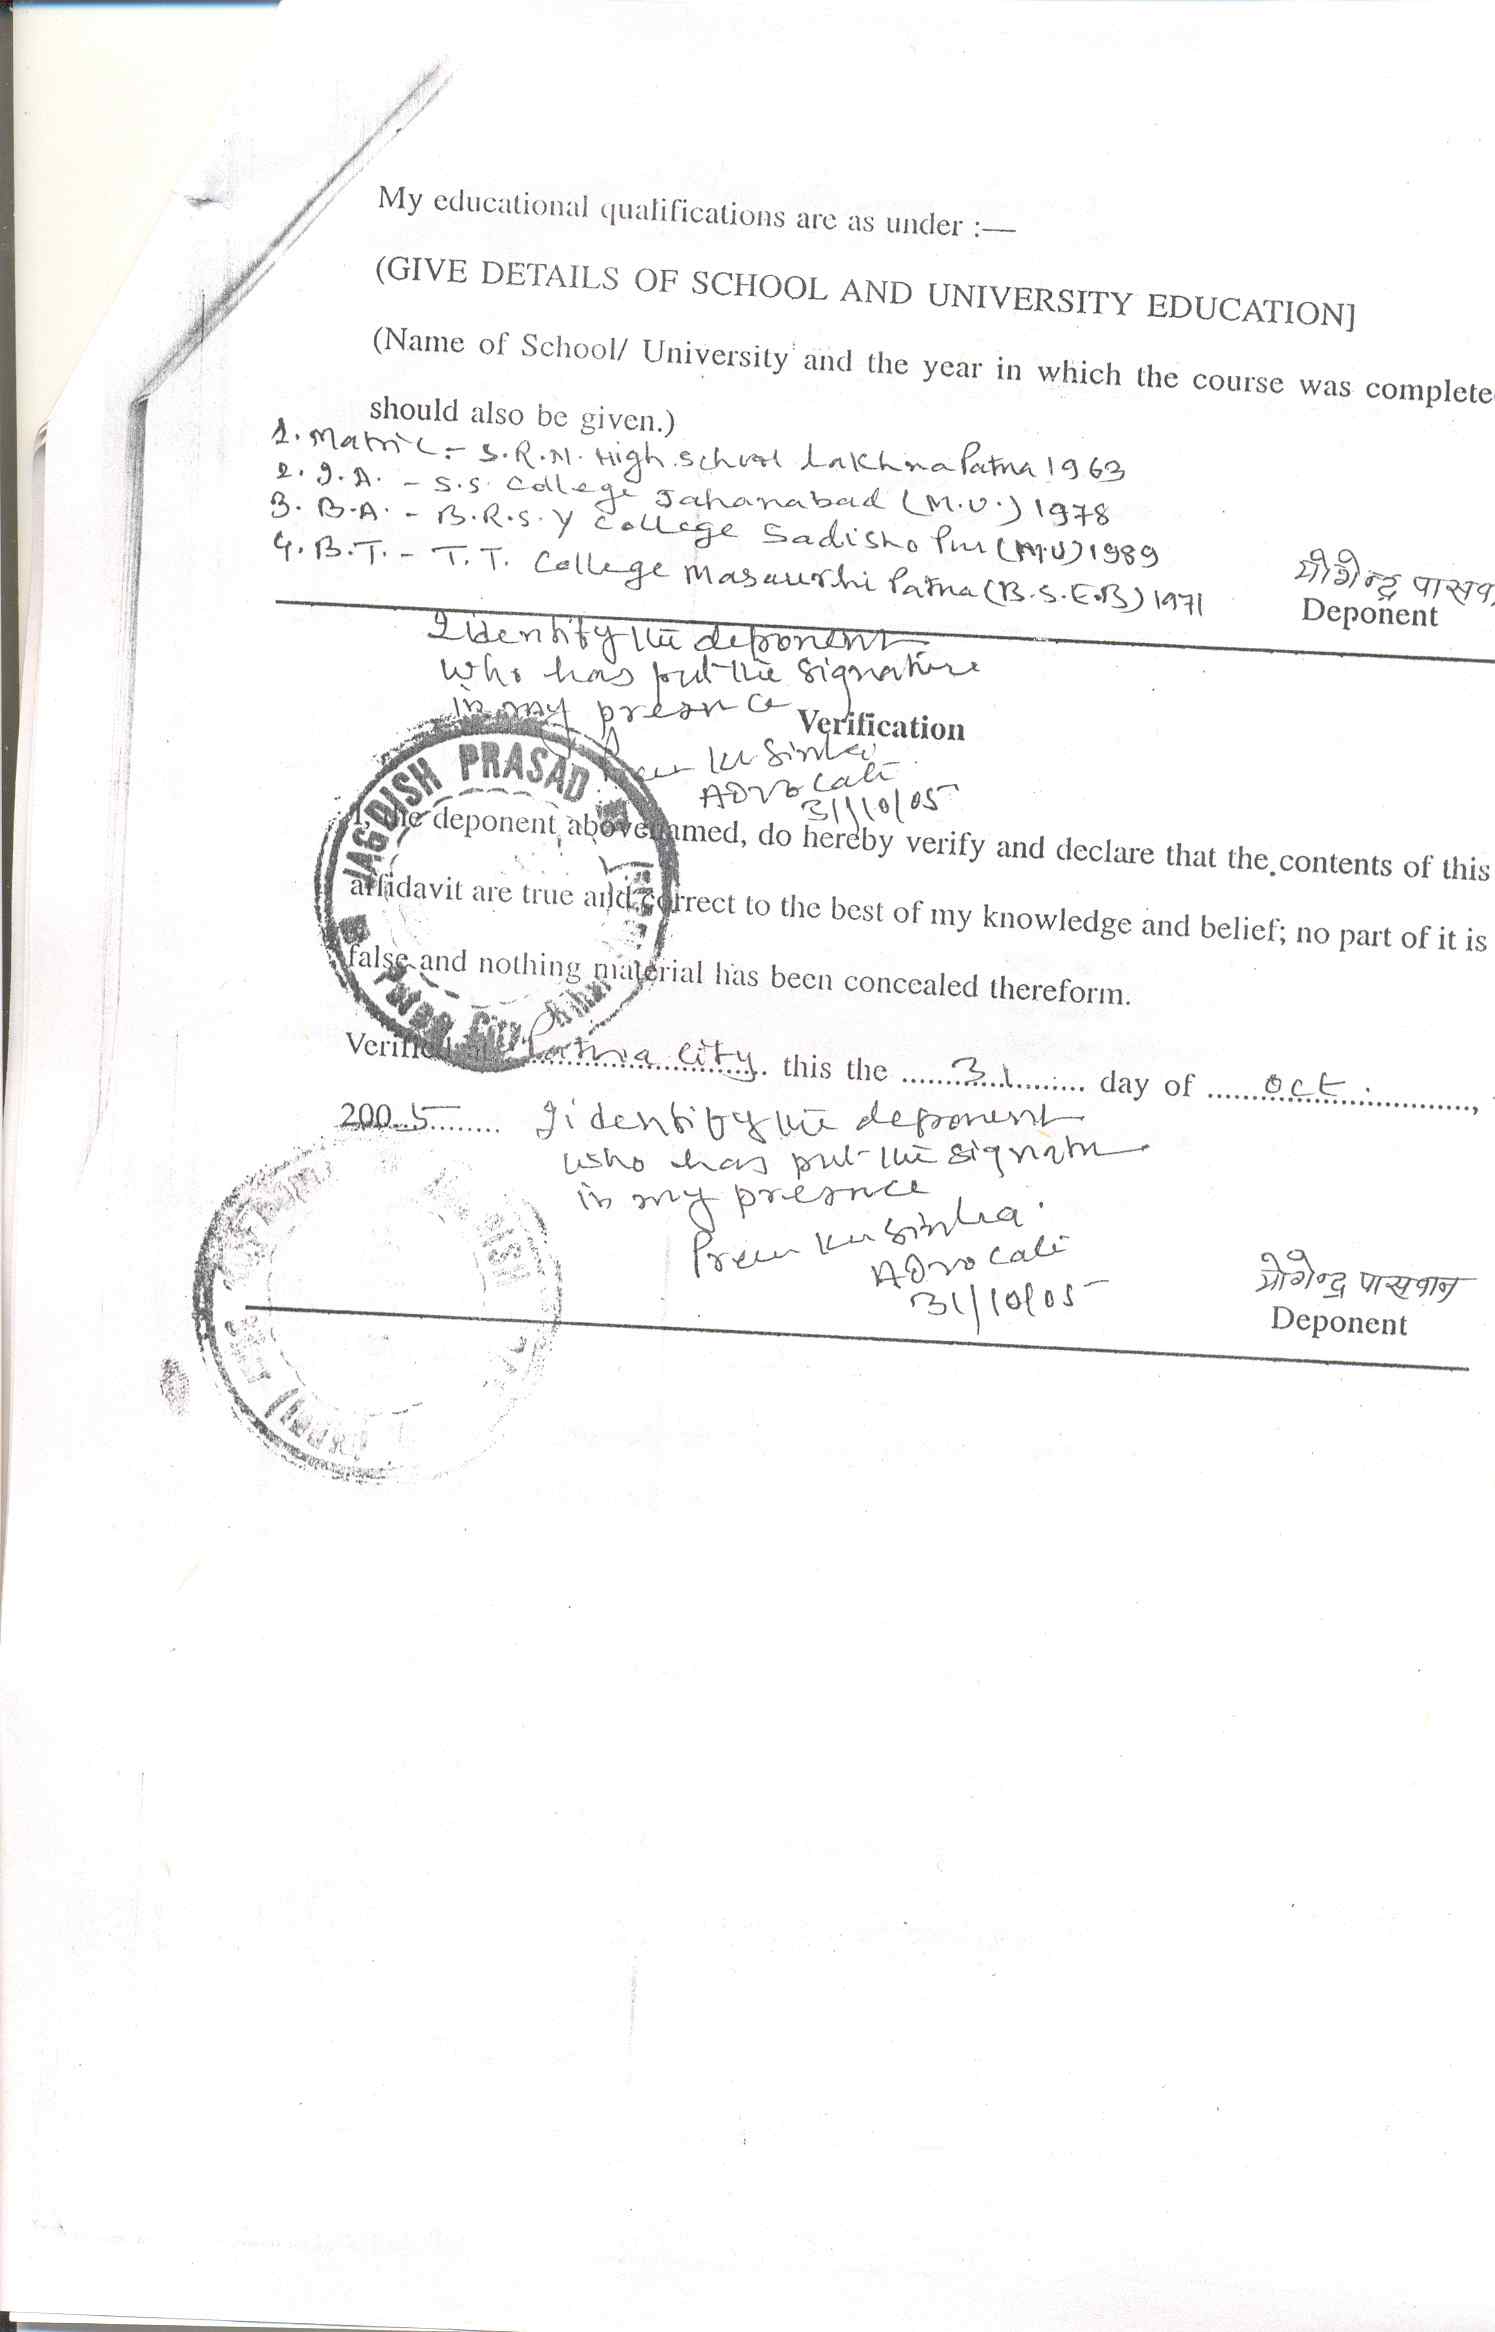 My educational qualifications are as under :—
(GIVE DETAILS OF SCHOOL AND UNIVERSITY EDUCATION]
(Name of School/ University and the year in which the course was complete
should also be given.)
1. Matric :- S.R.N. High school Lakhna Patna 1963
2. I.A. - S.S. College Jahanabad (M.U.) 1978
3. B.A. - B.R.S.Y College Sadisho Pur (M.U) 1989
4. B.T. - T.T. College Masaurhi Patna (B.S.E.B) 1971
योगेन्द्र पासव
Deponent
I identify the deponent
who has put the signature
in my presence
Verification
Ku Sinha
Advocate
31/10/05
JAGDISH PRASAD
Patna City
I, the deponent abovenamed, do hereby verify and declare that the contents of this
affidavit are true and correct to the best of my knowledge and belief; no part of it is
false and nothing material has been concealed thereform.
Verified at Patna City this the 31 day of Oct.,
2005
I identify the deponent
who has put the signature
in my presence
Prem Ku Sinha
Advocate
31/10/05
योगेन्द्र पासवान
Deponent